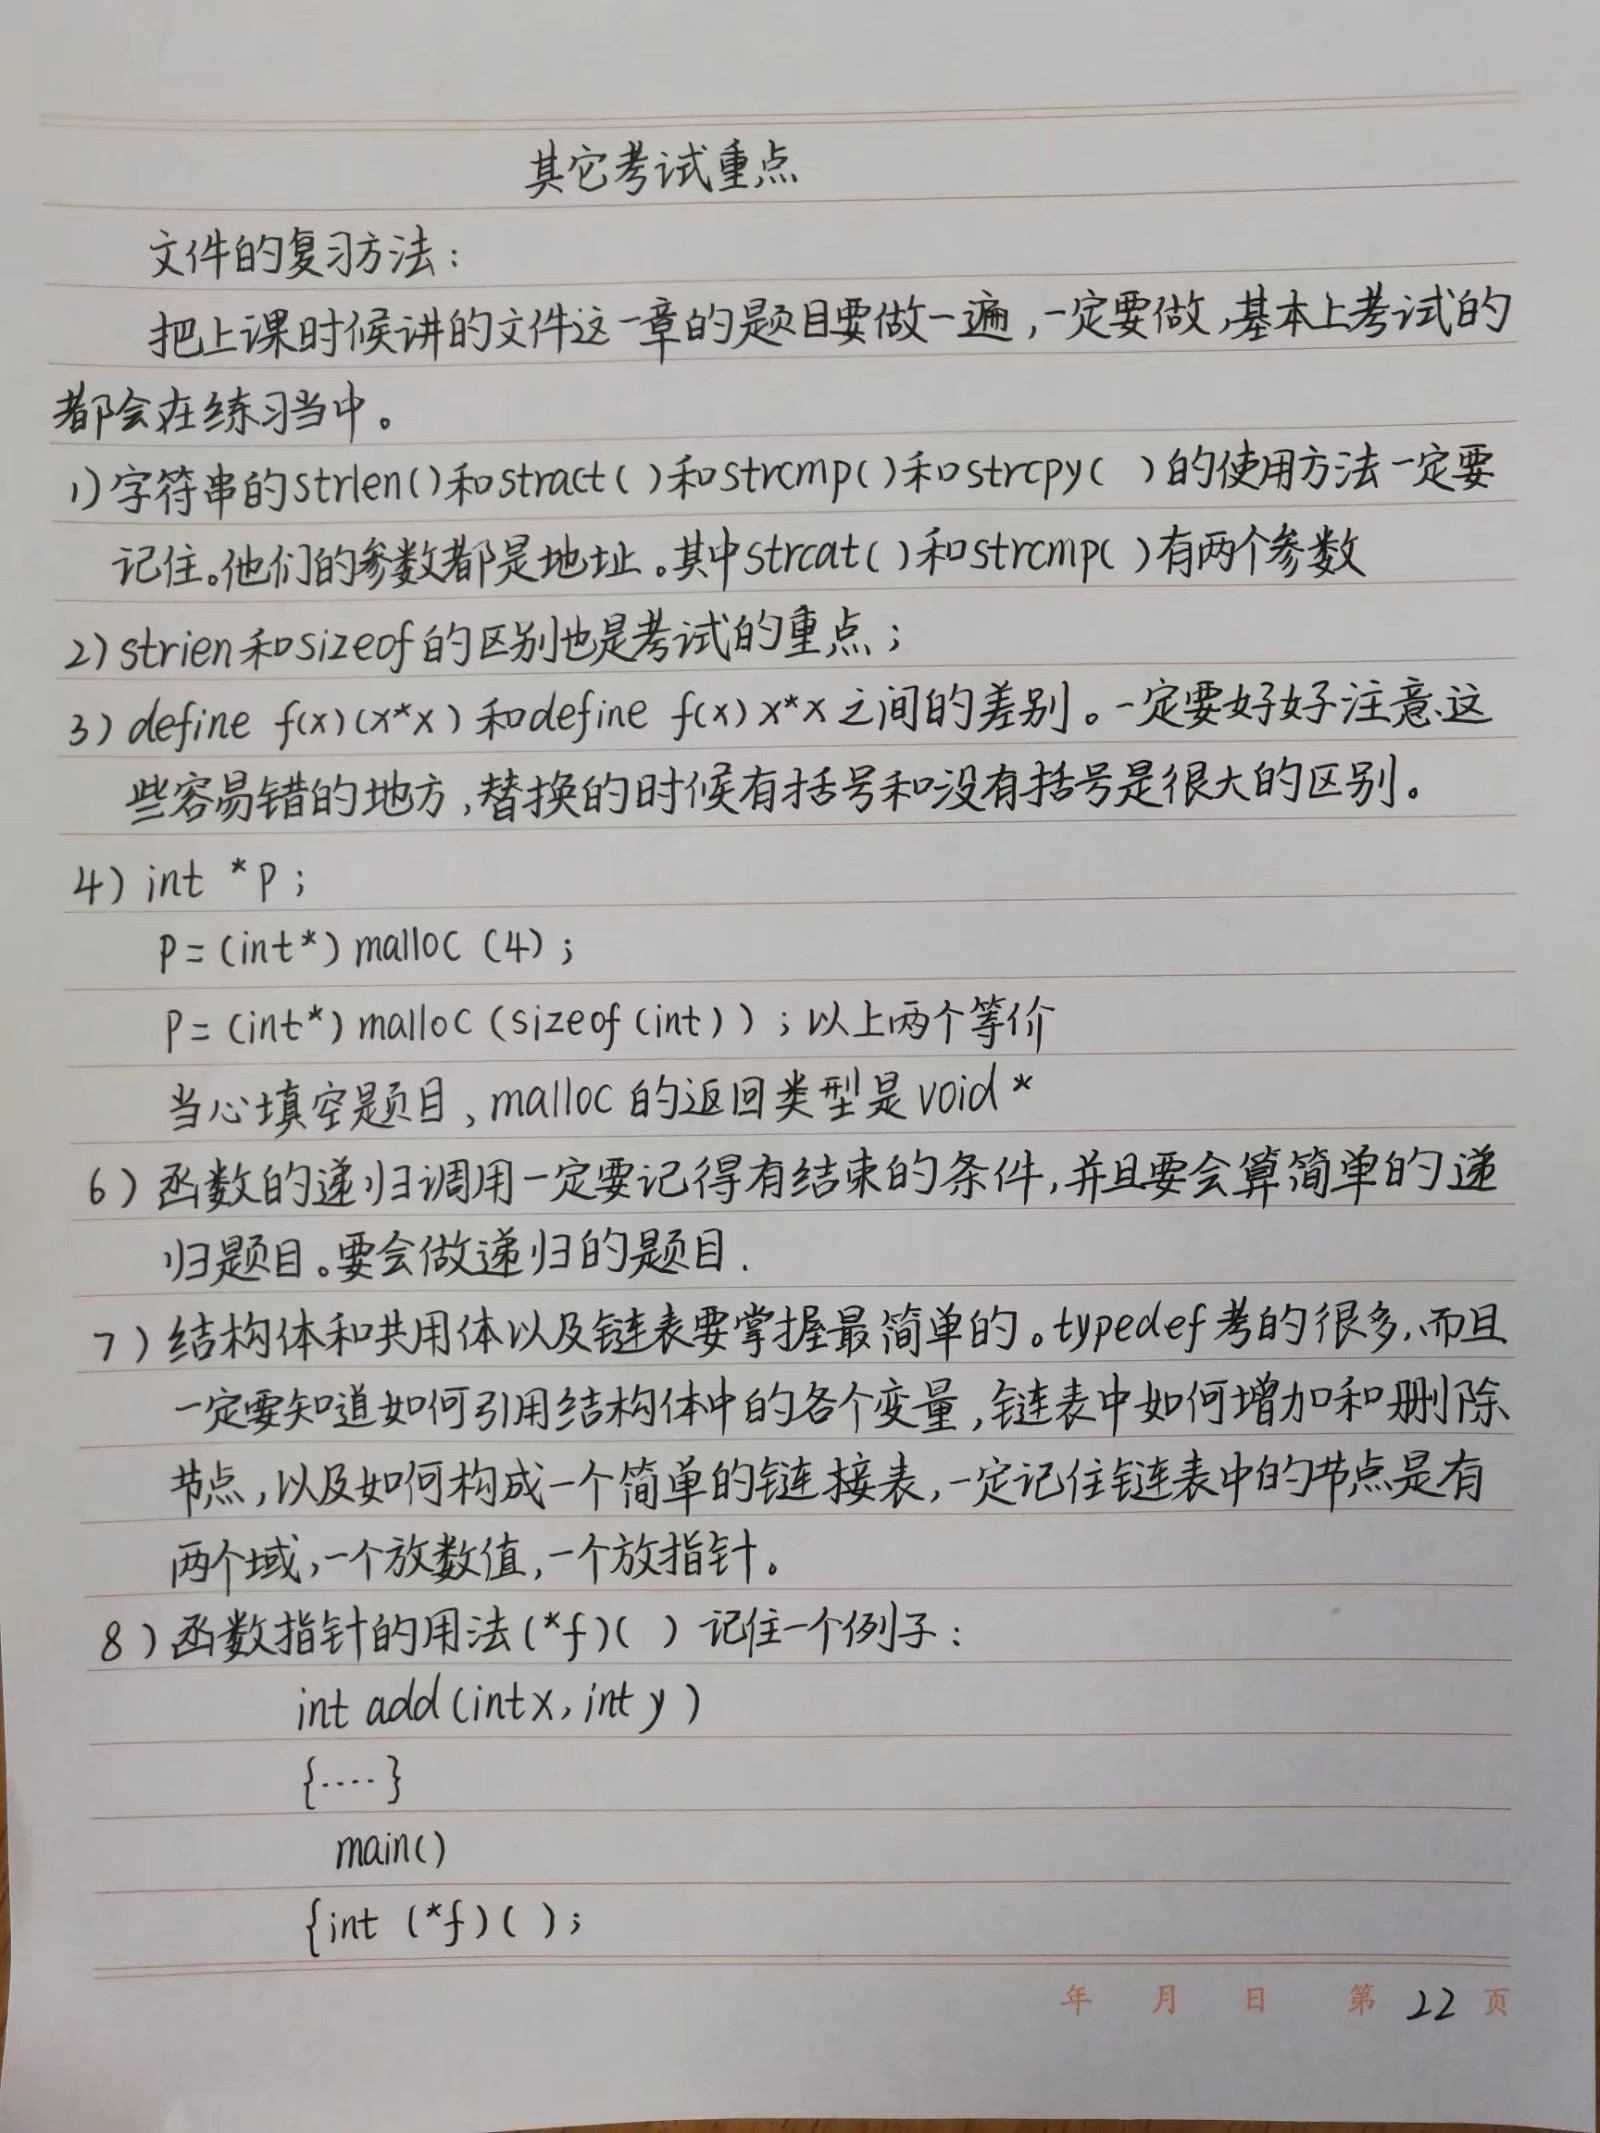 其它考试重点
文件的复习方法：
把上课时候讲的文件这一章的题目要做一遍，一定要做，基本上考试的
都会在练习当中。
1）字符串的strlen()和stract( )和strcmp()和strcpy( )的使用方法一定要
记住。他们的参数都是地址。其中strcat( )和strcmp( )有两个参数
2）strien和sizeof的区别也是考试的重点；
3）define f(x)(x*x)和define f(x) x*x之间的差别。一定要好好注意这
些容易错的地方，替换的时候有括号和没有括号是很大的区别。
4）int *p；
p=(int*)malloc (4)；
p=(int*)malloc (sizeof(int))；以上两个等价
当心填空题目，malloc的返回类型是void *
6）函数的递归调用一定要记得有结束的条件，并且要会算简单的递
归题目。要会做递归的题目.
7）结构体和共用体以及链表要掌握最简单的。typedef考的很多，而且
一定要知道如何引用结构体中的各个变量，链表中如何增加和删除
节点，以及如何构成一个简单的链接表，一定记住链表中的节点是有
两个域，一个放数值，一个放指针。
8）函数指针的用法(*f)( ) 记住一个例子：
int add(int x, int y )
{····}
main()
{int (*f)( )；
年 月 日 第 22 页